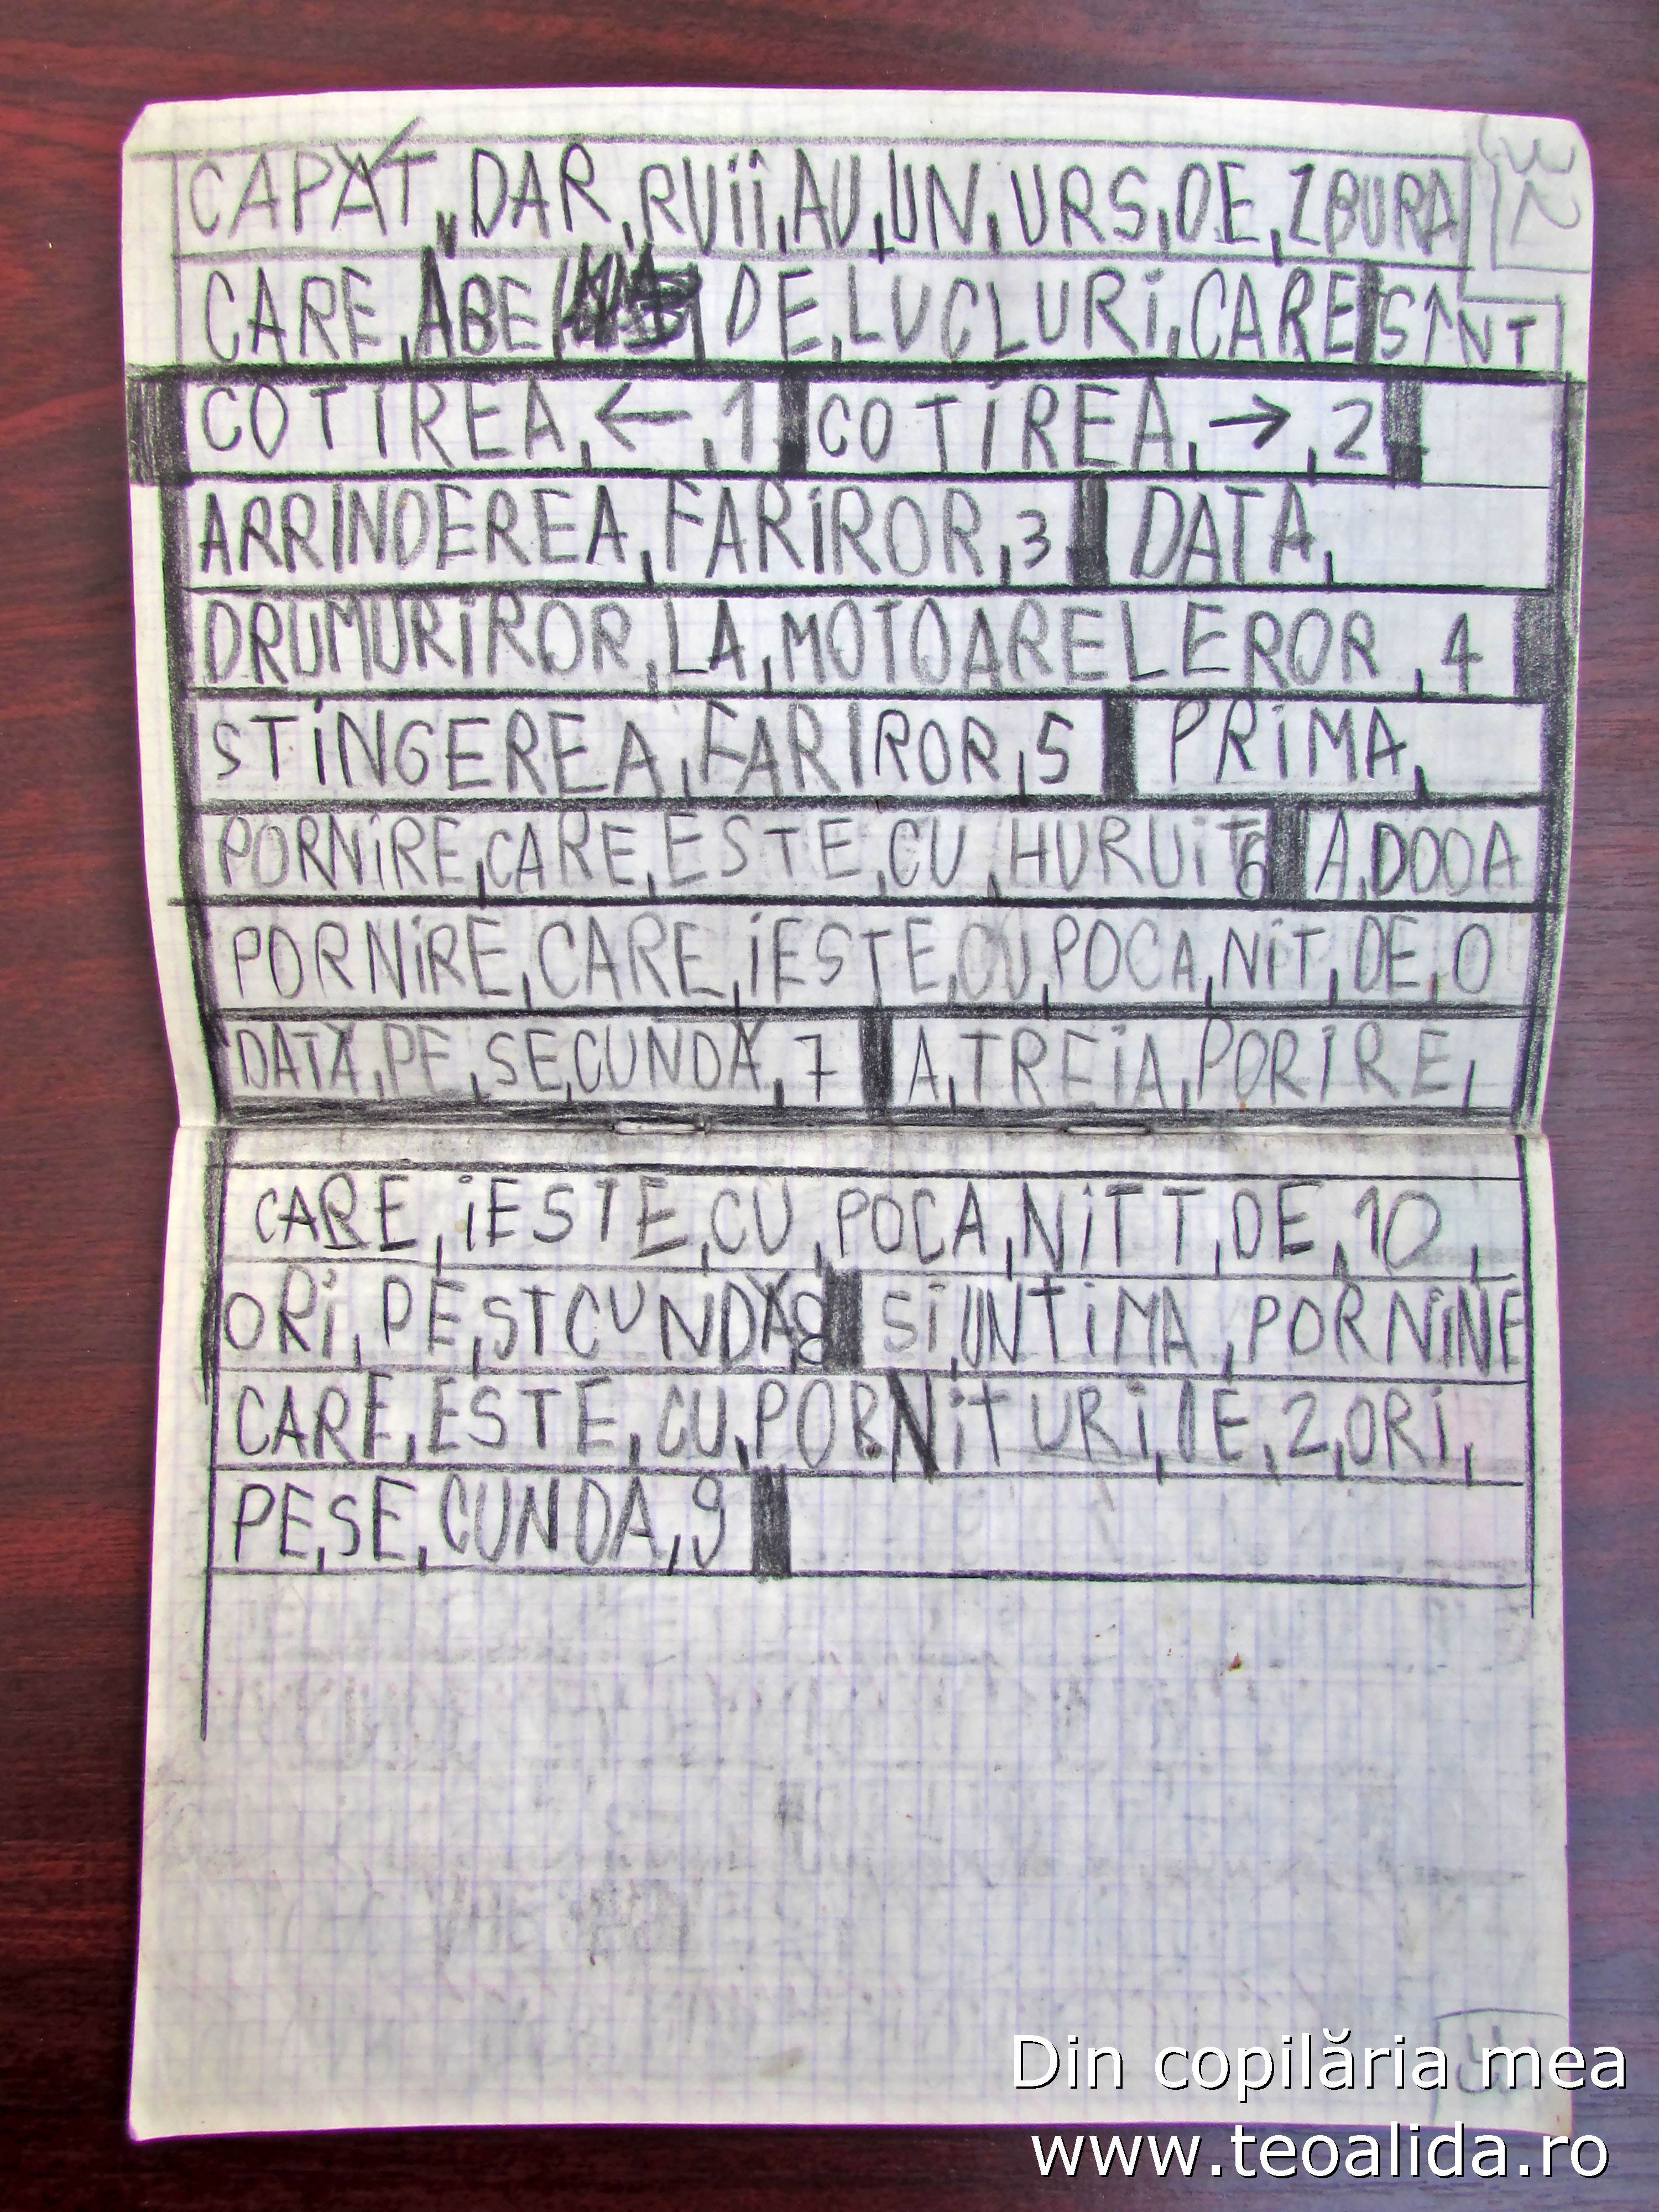 CAPĂT,,DAR,RUII,AU,UN,URS,DE,ZBURA
CARE,ABE DE,LUCLURI,CARE SÎNT
COTIREA,←,1 COTIREA,→,2
ARRINDEREA,FARIROR,3 DATA,
DRUMURIROR,LA,MOTOARELEROR,4
STINGEREA,FARIROR,5 PRIMA,
PORNIRE,CARE,ESTE,CU,HURUIT6 A,DOOA
PORNIRE,CARE,IESTE,CU,POCA,NIT,DE,O
DATĂ,PE,SE,CUNDĂ,7 A,TREIA,PORIRE,
CARE,IESTE,CU,POCA,NITT,DE,10,
ORI,PE,STCUNDĂ,8 SI,UNTIMA,PORNINE
CARE,ESTE,CU,PORNITURI,DE,2,ORI,
PE,SE,CUNDA,9
Din copilăria mea
www.teoalida.ro